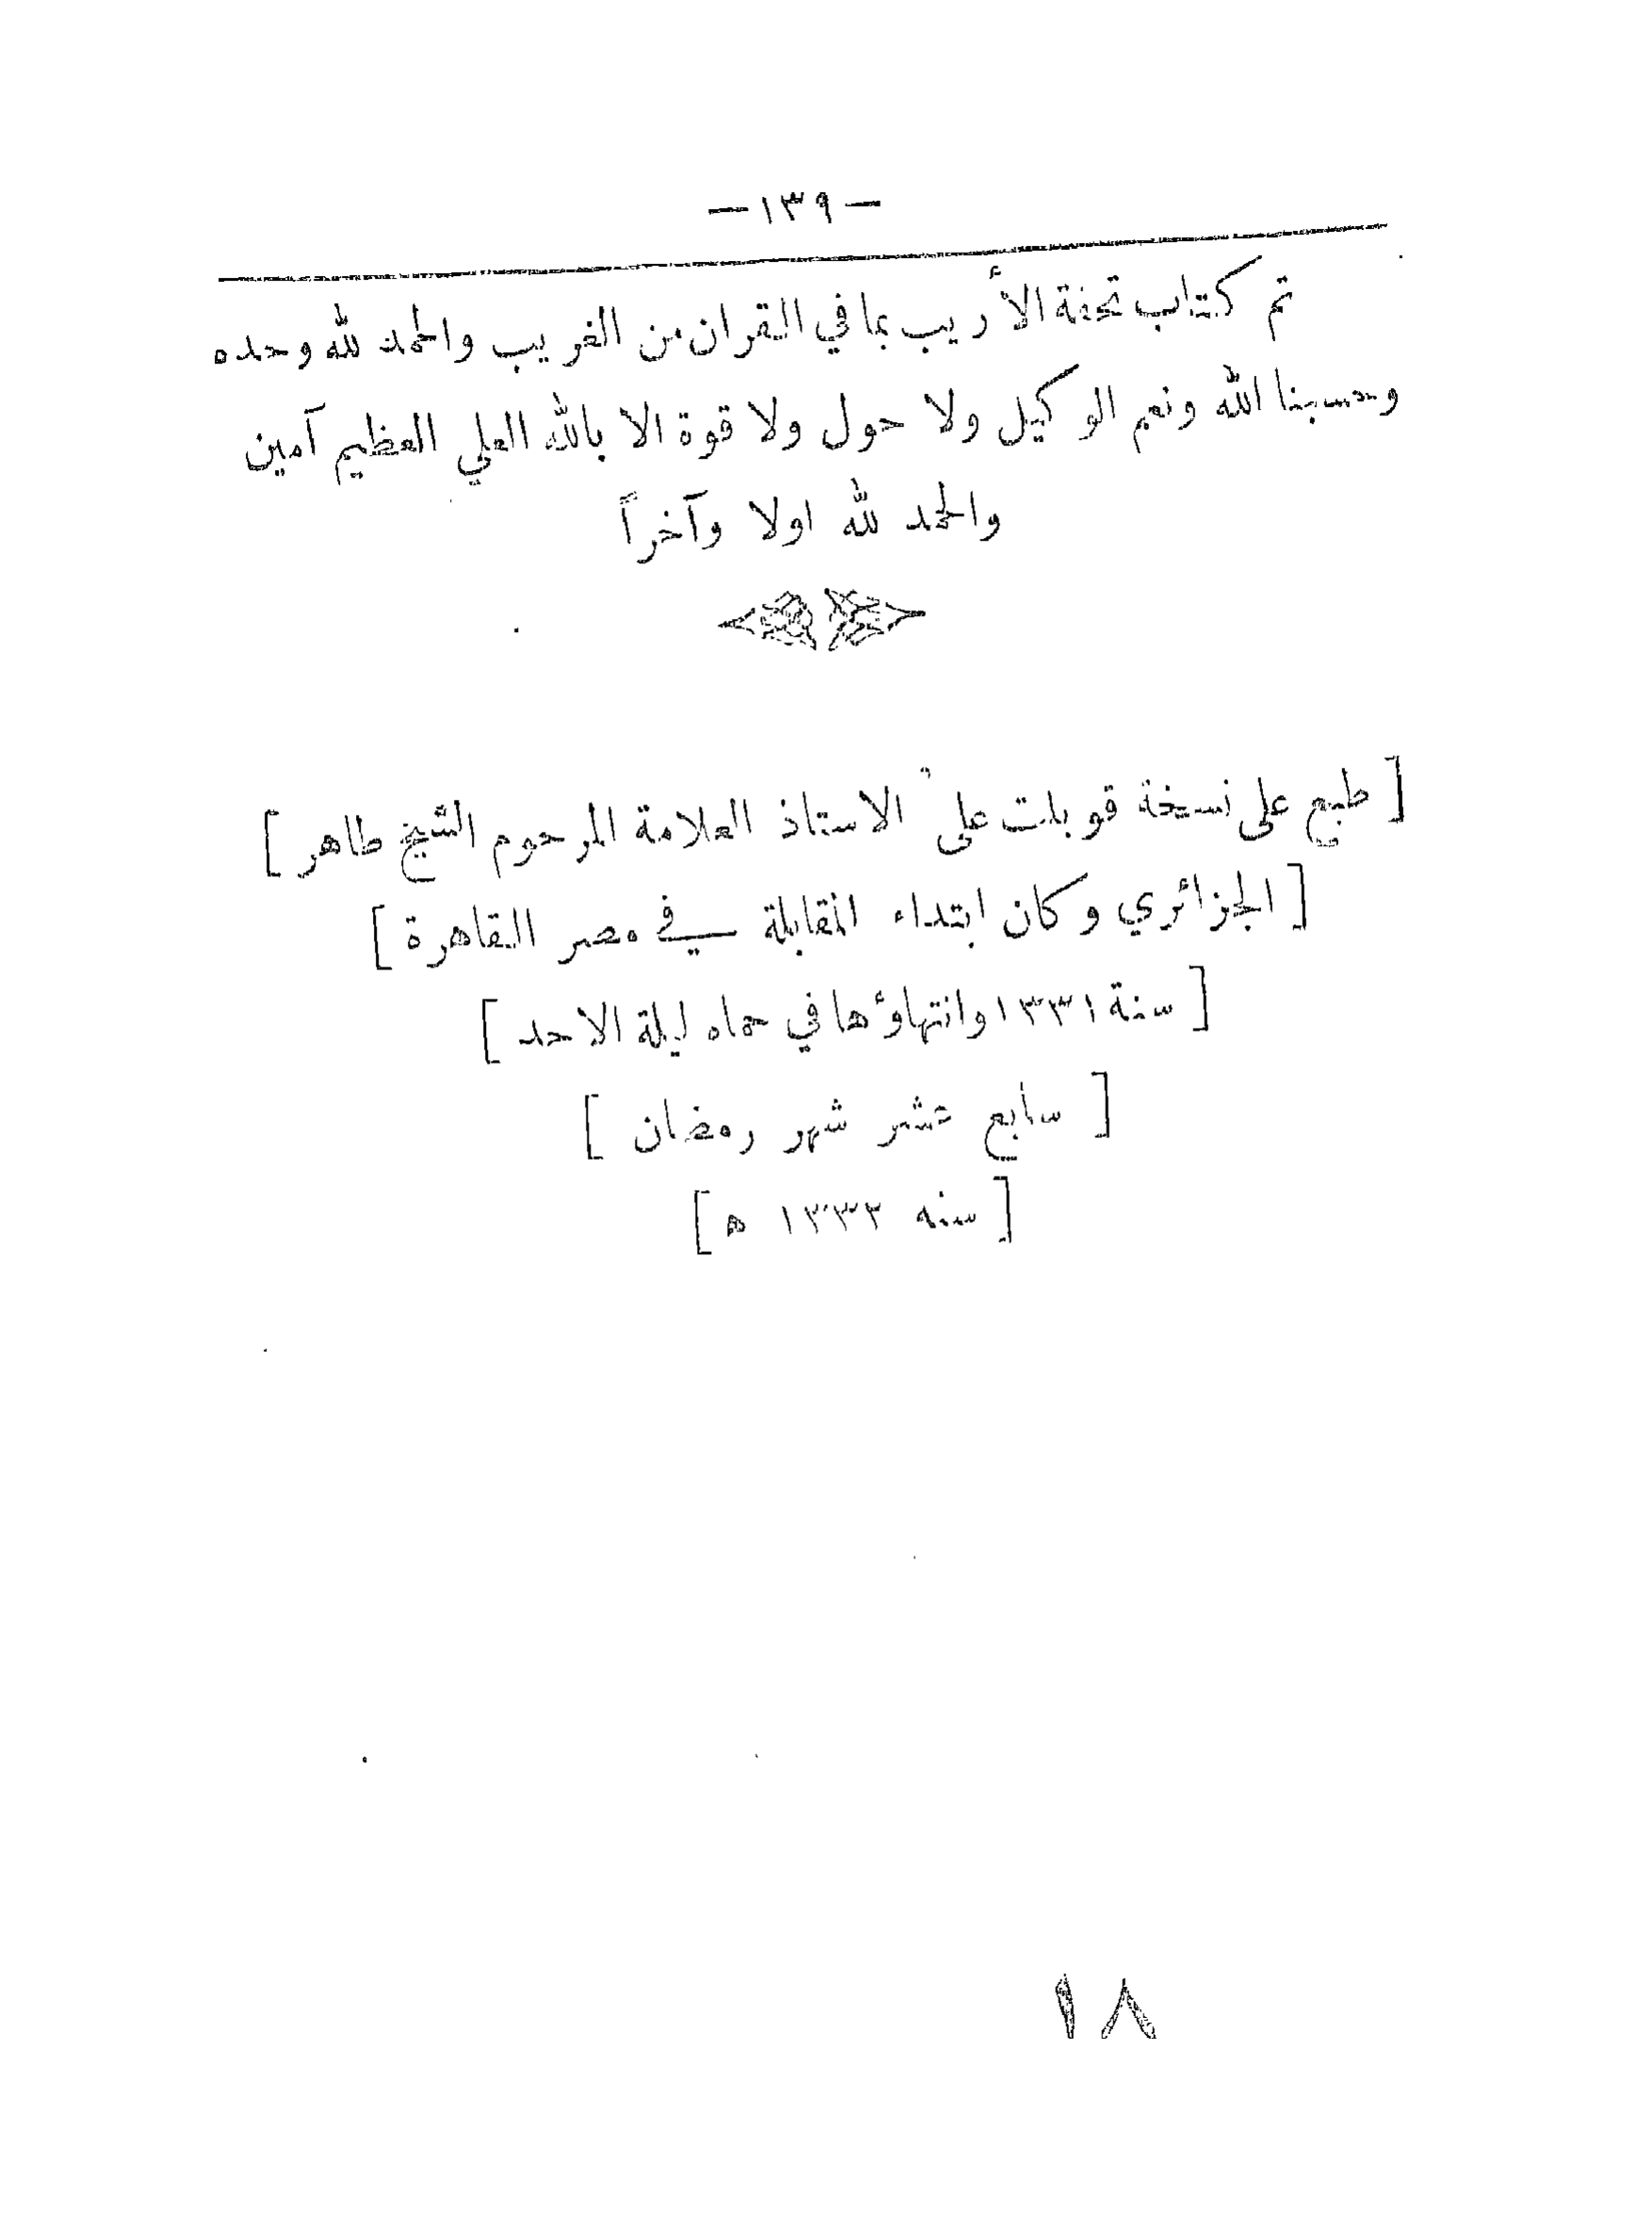 — ١٣٩ —
تم كتاب تحفة الأريب بما في القران من الغريب والحمد لله وحده
وحسبنا الله ونعم الوكيل ولا حول ولا قوة الا بالله العلي العظيم آمين
والحمد لله اولا وآخراً
[ طبع على نسخة قوبلت على الاستاذ العلامة المرحوم الشيخ طاهر ]
[ الجزائري وكان ابتداء المقابلة في مصر القاهرة ]
[ سنة ١٣٣١ وانتهاؤها في حماه ليلة الاحد ]
[ سابع عشر شهر رمضان ]
[ سنه ١٣٣٢ ه ]
١٨